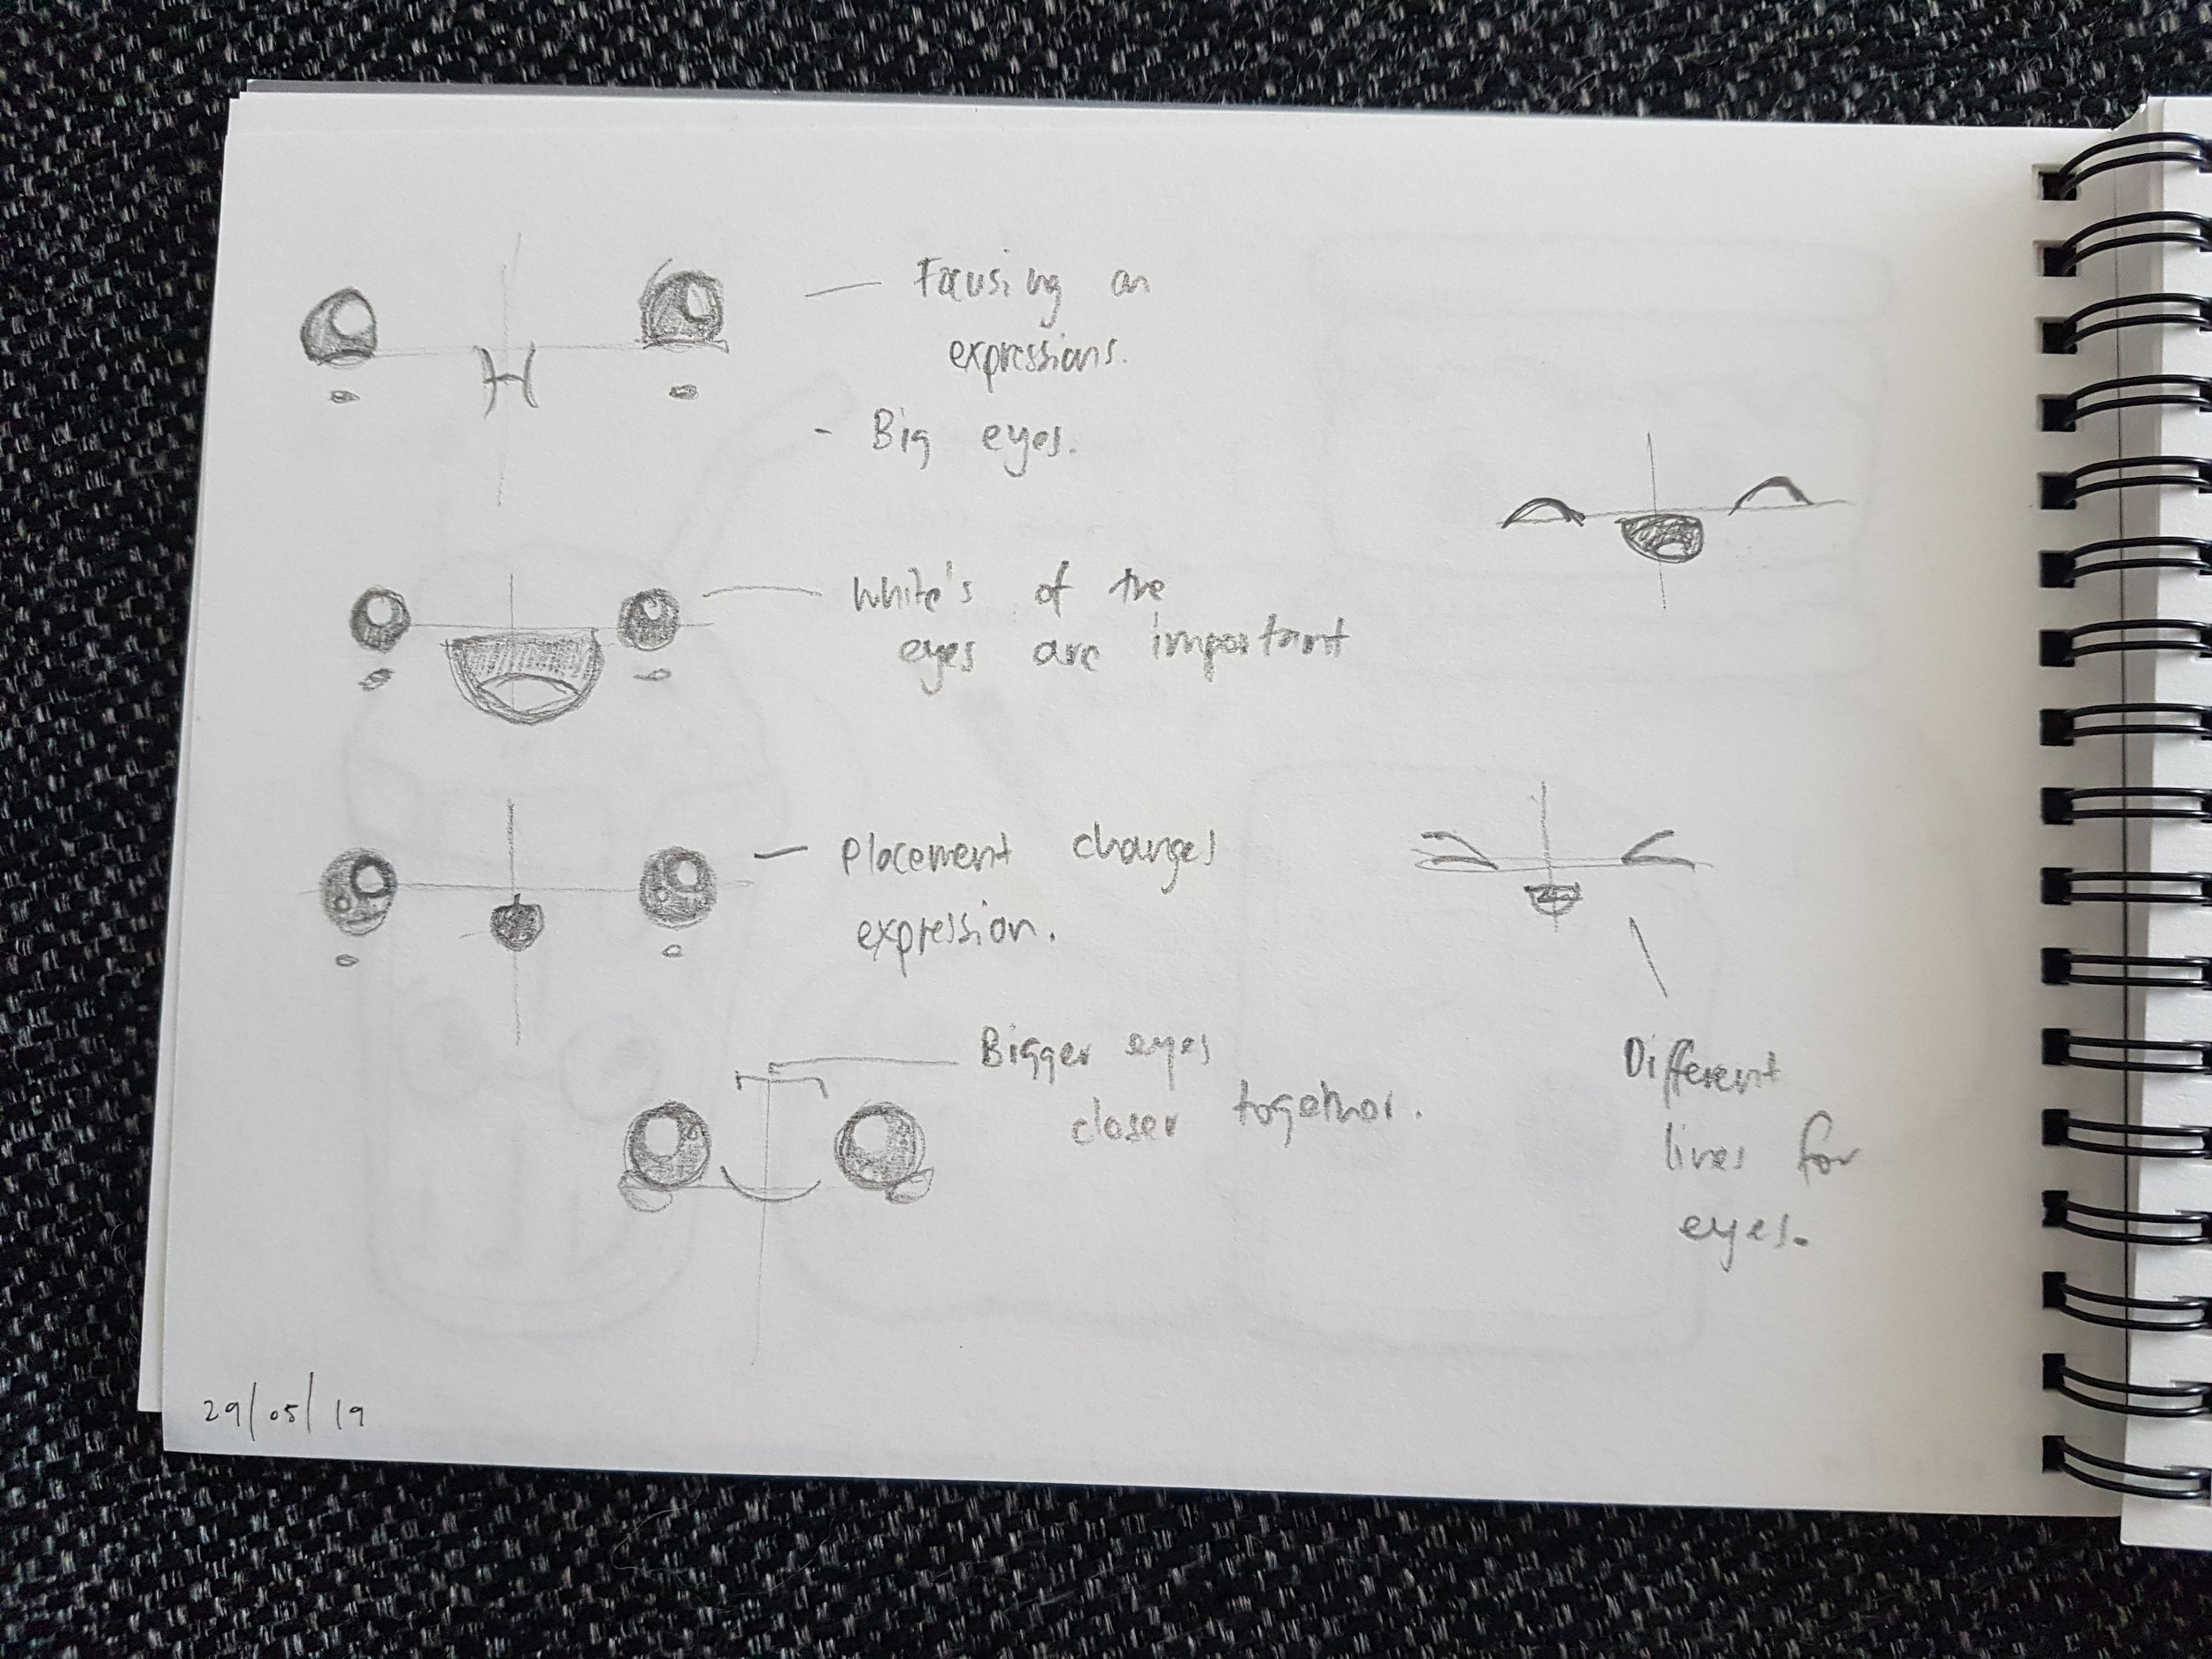 — Focusing on
expressions.
- Big eyes.
White's of the
eyes are important
— Placement changes
expression.
Bigger eyes
closer together.
Different
lines for
eyes.
29/05/19